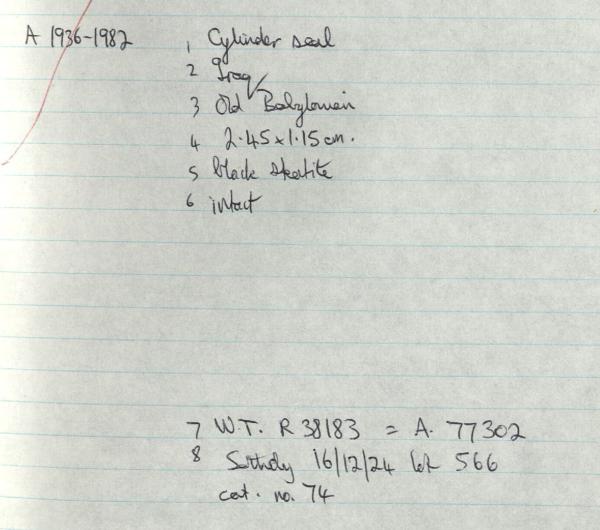 A 1936-1982 1 Cylinder seal
2 Iraq
3 Old Babylonian
4 2.45 x 1.15 cm.
5 black steatite
6 intact
7 W.T. R 38183 = A. 77302
8 Sotheby 16/12/24 lot 566
cat. no. 74